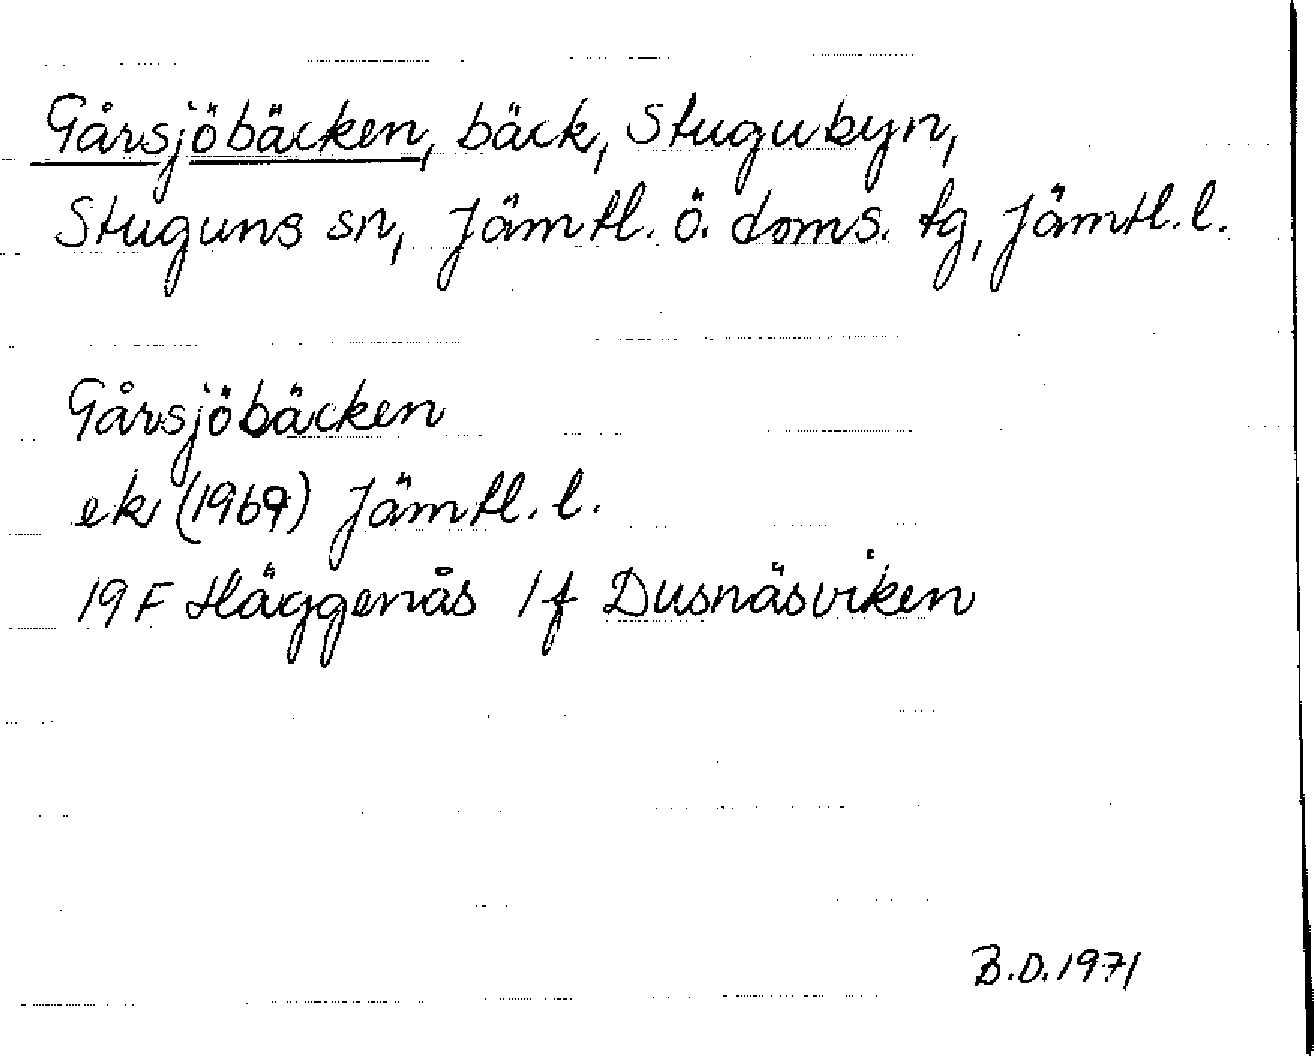 Gårsjöbäcken, bäck, Stugubyn,
Stuguns sn, Jämtl. ö. doms. tg, Jämtl. l.
Gårsjöbäcken
ek (1969) Jämtl. l.
19 F Häggenås 1 f Dusnäsviken
B.D. 1971